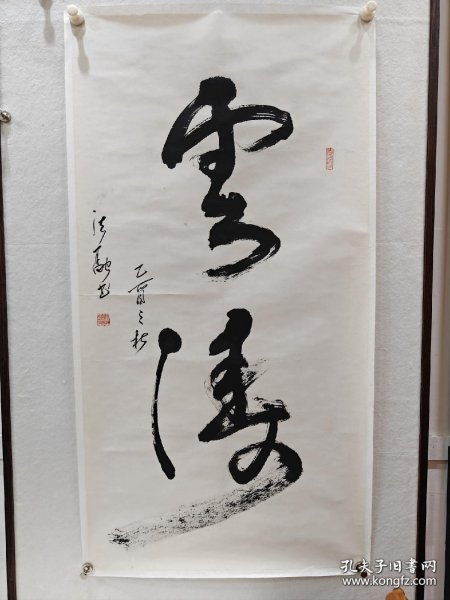 雲濤
乙酉之秋
法融书
孔夫子旧书网
www.kongfz.com